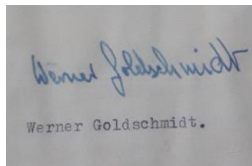 Werner Goldschmidt
Werner Goldschmidt.